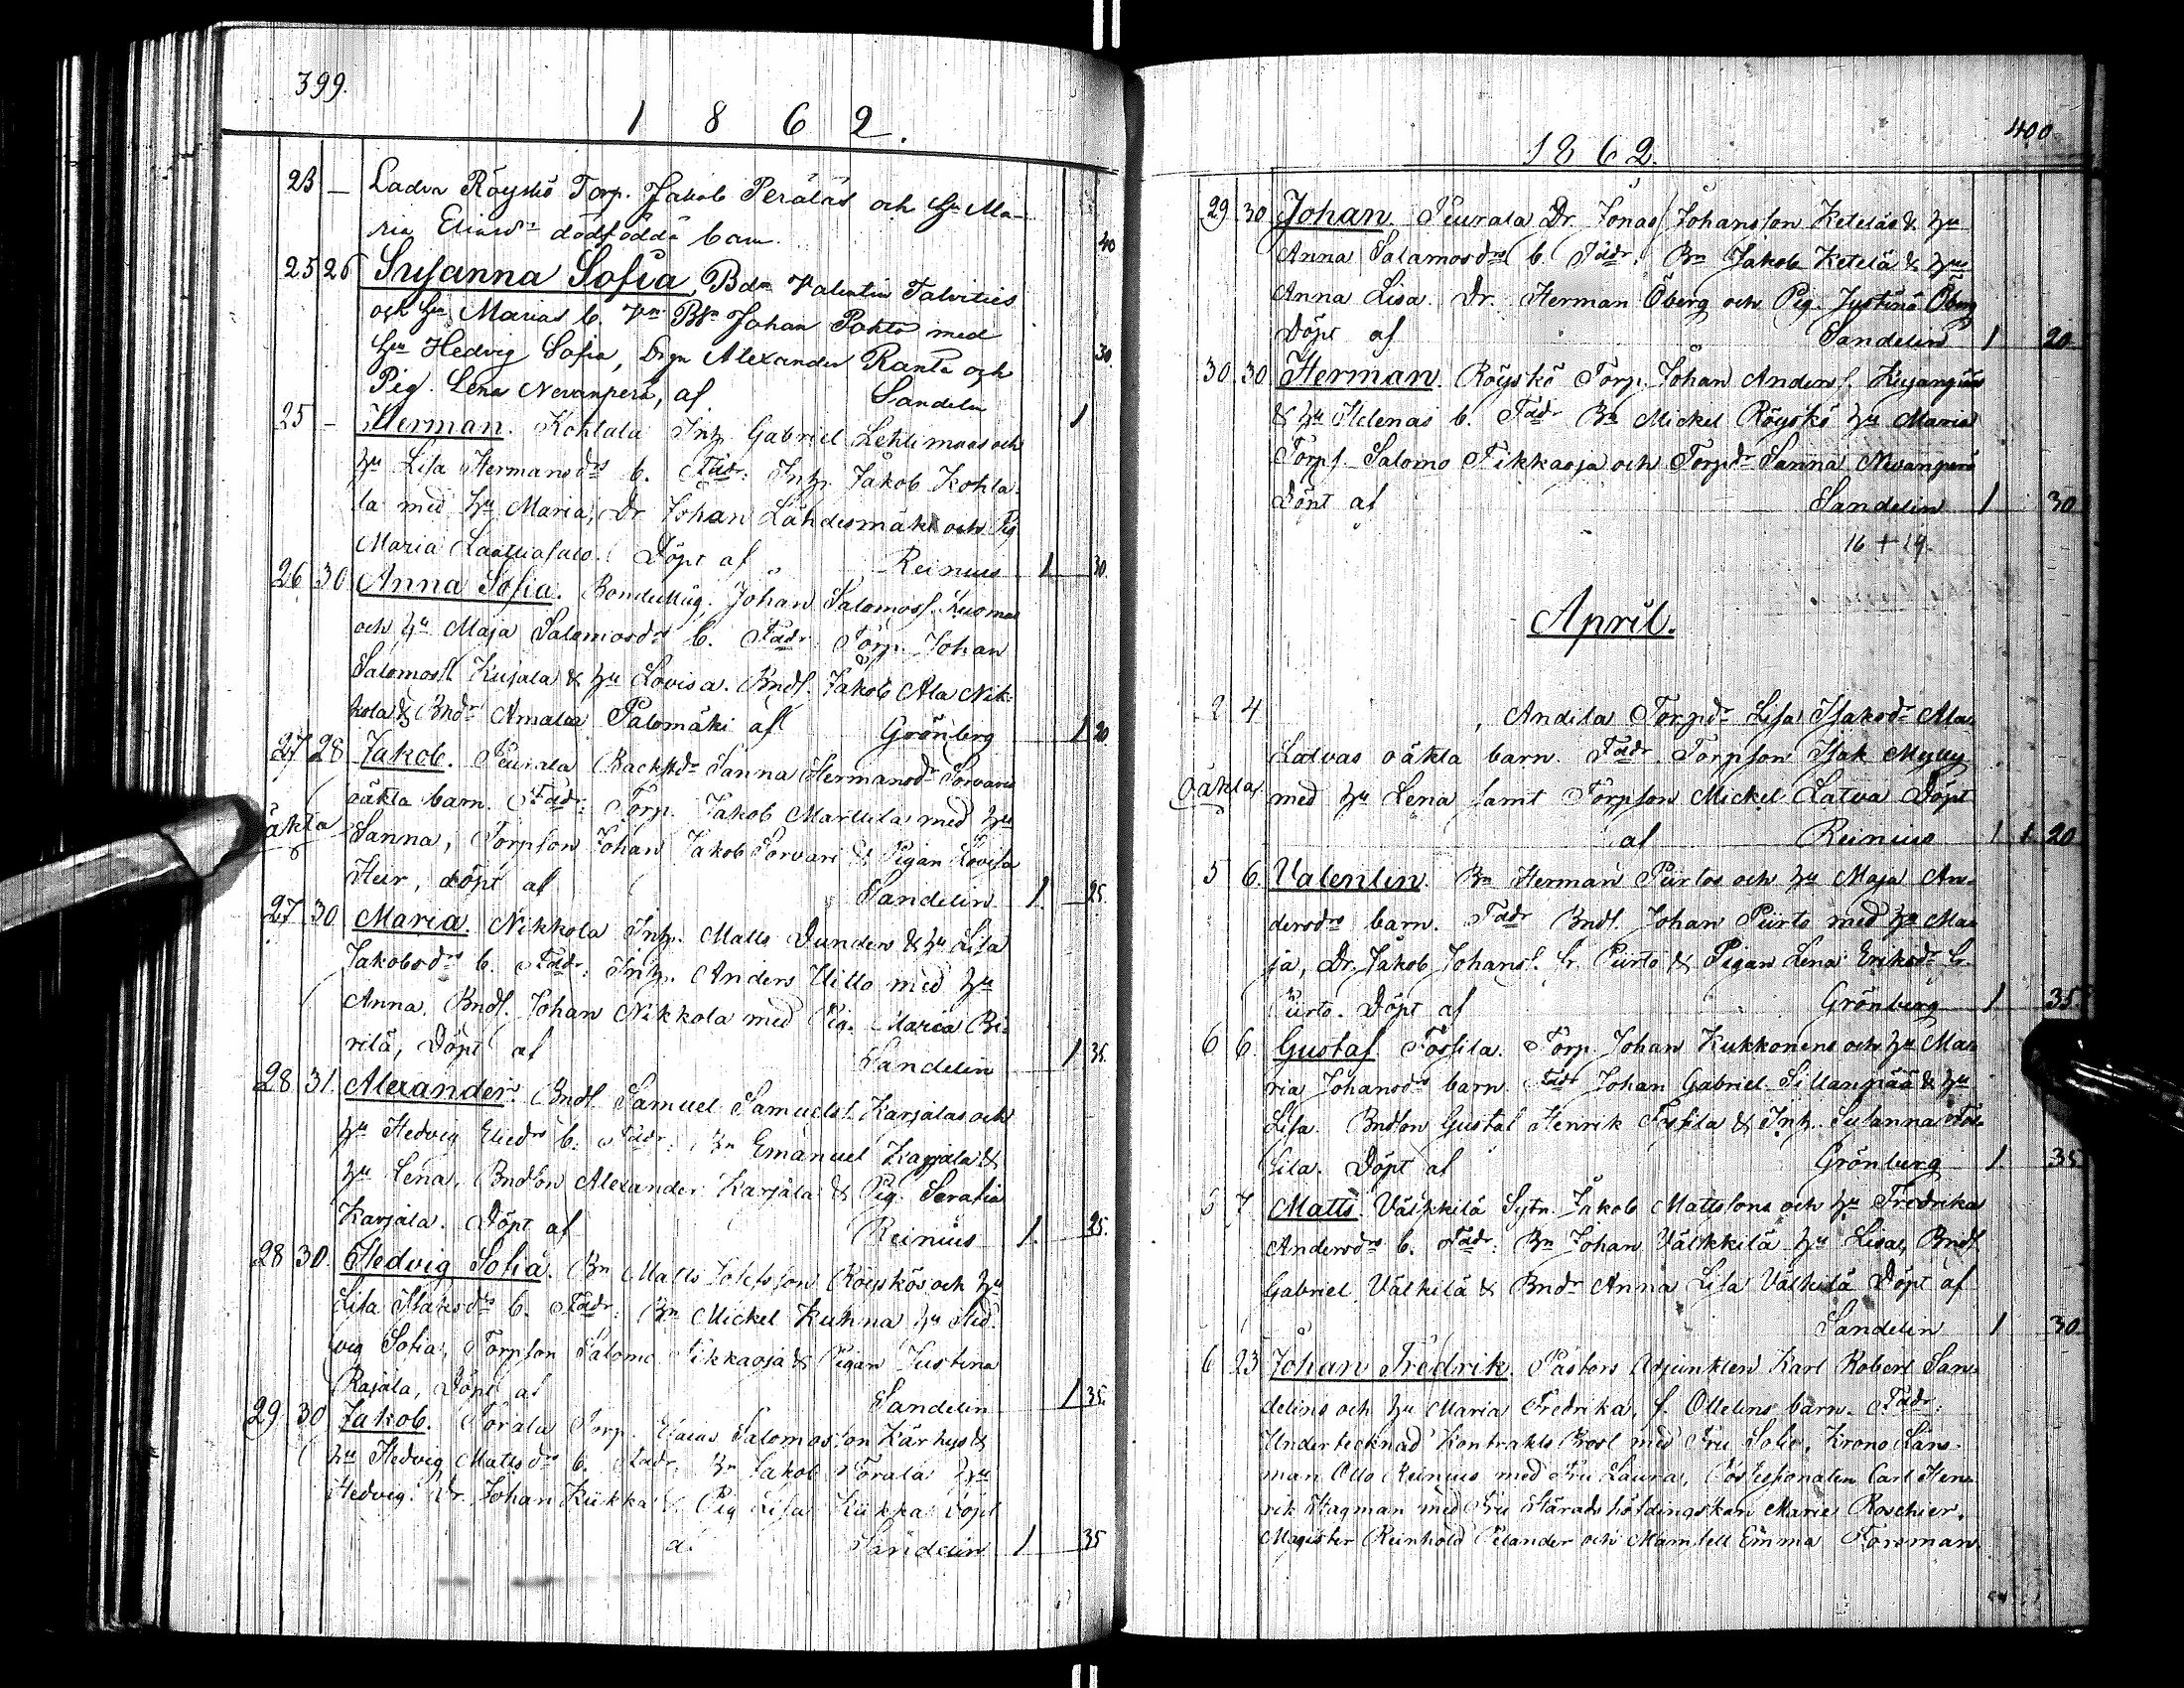 399.
1862.
23 — Ladva Röyskö Torp. Jakob Peräläs och hu Ma-
ria Eliasdr dödfödda barn. 40
25 26 Susanna Sofia, Bdn Valentin Talvities
och hu Marias b. Vn Bdn Johan Pokto med
hu Hedvig Sofia, Drgn Alexander Ranta och 30.
Pig. Lena Nevanperä, af Sandelin 1
25 — Herman. Kohlala Inh. Gabriel Lehtimaas och
hu Lisa Hermansdrs b. Fadr: Inh. Jakob Kohla-
la med hu Maria, Dr Johan Lähdesmäki och Pig
Maria Laattiasalo. Döpt af Reinius 1 30.
26 30 Anna Sofia. Johan Salomoss. Kuomas
och hu Maja Salomosdrs b. Fadr: Torp. Johan
Salomoss Kujala & hu Lovisa. Bnds. Jakob Ala Nik-
kola & Bndr Amalia Palomäki af Grönberg 1 20.
27 28 Jakob. Peurala Backstdr Sanna Hermansdr Sorvaris
oäkta barn. Fadr: Torp. Jakob Marttila med hu
oäkta Sanna, Torpson Johan Jakob Sorvari & Pigan Lovisa
Heir, döpt af Sandelin 1. 25.
27 30 Maria. Nikkola Inh. Matts Dunders & hu Lisa
Jakobsdrs b. Fadr: Inh. Anders Uitto med hu
Anna, Bnds. Johan Nikkola med Pig. Maria Bi-
rilä, Döpt af Sandelin 1 35.
28 31. Alexander. Bnds Samuel Samuelss. Karjalas och
hu Hedvig Eliedrs b. Fadr: Bn Emanuel Karjala &
hu Lena, Bndson Alexander Karjala & Pig. Serafia
Karjala. Döpt af Reinius 1. 25.
28 30. Hedvig Sofia. Bn Matts Röyskös och hu
Lisa Isaksdrs b. Fadr: Bn Mickel Kuhna hu Hed-
vig Sofia, Torpson Salomo Tikkaoja & Pigan Justina
Rajala, Döpt af Sandelin 1 35.
29 30 Jakob. Torala Torp. Esaias Salomosson Kärhys &
hu Hedvig Mattsdrs b. Fadr. Bn Jakob Torala hu
Hedvig. Dr. Johan Kukka & Pig Lisa Kukka Döpt
af Sandelin 1 35
400
1862.
29 30 Johan, Peurala Dr. Jonas Johansson Keteläs & hu
Anna Salamosdrs b. Fadr. Bn Jakob Ketelä & hu
Anna Lisa. Dr. Herman Öberg och Pig. Justina Öberg
Döpt af Sandelin 1 20
30 30 Herman. Röyskö Torp. Johan Anderss. Kujanpääs
& hu Helenas b. Fadr Bn Mickel Röyskö hu Maria
Torps. Salomo Tikkaoja och Torpdr Sanna Nevanperä
Döpt af Sandelin 1 30
16 + 19.
April.
2 4 , Andila Torpdr Lisa Isaksdr Maa
Latvas oäkta barn. Fadr Torpson Isak Mylly
oäkta med hu Lena samt Torpson Mickel Latva Döpt
af Reinius 1 1. 20
5 6. Valentin. Bn Herman Piirtos och hu Maja An-
dersdrs barn. Fadr Bnds. Johan Piirto med hu Ma-
ja, Dr. Jakob Johanss. Piirto & Pigan Lena Eriksdr
Piirto. Döpt af Grönberg 1. 35
6 6. Gustaf Fossila. Torp. Johan Kukkonens och hu Ma-
ria Johansdrs barn. Fadr Johan Gabriel Sillanpää & hu
Lisa. Bndson Gustaf Henrik Fossila & Inh. Susanna Fos-
sila. Döpt af Grönberg 1. 35
5 7 Matts. Välkkilä Sytn. Jakob Mattssons och hu Fredrika
Andersdrs b. Fadr: Bn Johan Välkkilä hu Lisa, Bnds
Gabriel Välkilä & Bndr Anna Lisa Välkilä Döpt af
Sandelin 1 30
6 23 Johan Fredrik. Pastors Adjunkten Karl Robert San-
delins och hu Maria Fredrika, f. Ottelins barn. Fadr:
Undertecknad Kontrakts Prost med Fru Sofie, Krono Läns-
man Otto Reinius med Fru Laura, Possessionaten Carl Hen-
rik Hagman med Fru Häradshöfdingskan Marie Roschier.
Magister Reinhold Pelander och Mamsell Emma Forsman